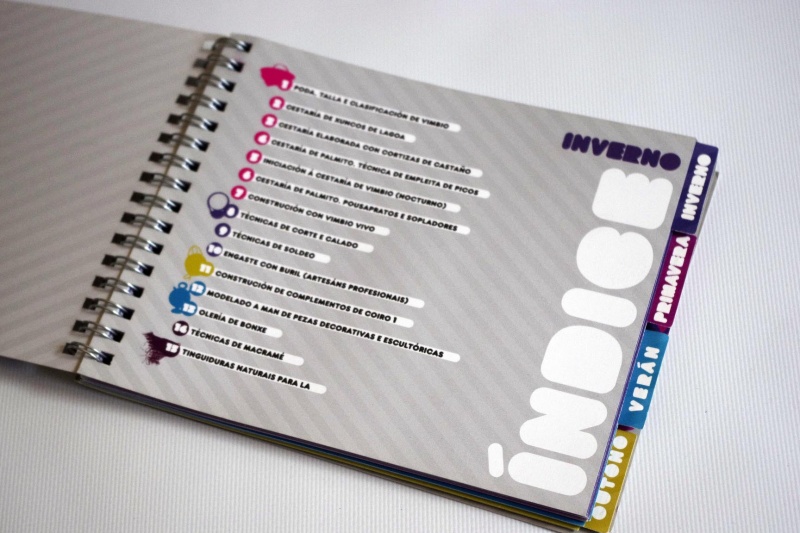 1 PODA, TALLA E CLASIFICACIÓN DE VIMBIO
2 CESTARÍA DE XUNCOS DE LAGOA
3 CESTARÍA ELABORADA CON CORTIZAS DE CASTAÑO
4 CESTARÍA DE PALMITO. TÉCNICA DE EMPLEITA DE PICOS
5 INICIACIÓN Á CESTARÍA DE VIMBIO (NOCTURNO)
6 CESTARÍA DE PALMITO. POUSAPRATOS E SOPLADORES
7 CONSTRUCIÓN CON VIMBIO VIVO
8 TÉCNICAS DE CORTE E CALADO
9 TÉCNICAS DE SOLDEO
10 ENGASTE CON BURIL (ARTESÁNS PROFESIONAIS)
11 CONSTRUCIÓN DE COMPLEMENTOS DE COIRO 1
12 MODELADO A MAN DE PEZAS DECORATIVAS E ESCULTÓRICAS
13 OLERÍA DE BONXE
14 TÉCNICAS DE MACRAMÉ
15 TINGUIDURAS NATURAIS PARA LA
INVERNO
ÍNDICE
INVERNO
PRIMAVERA
VERÁN
OUTONO